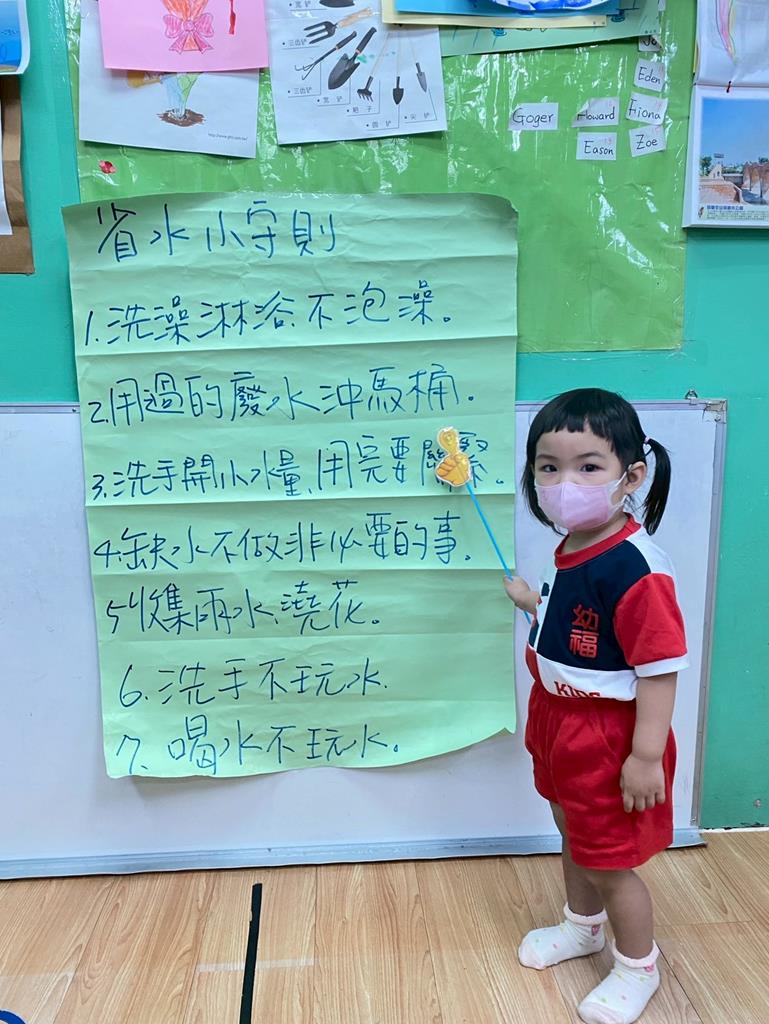 寬鏟
三齒鏟
三齒鏟
寬鏟
耙子
圓鏟
尖鏟
Jo
Eden
Goger
Howard
Fiona
Eason
Zoe
省水小守則
1.洗澡淋浴、不泡澡。
2.用過的廢水沖馬桶。
3.洗手開小水量、用完要關緊。
4.缺水不做非必要的事。
5.收集雨水、澆花。
6.洗手不玩水.
7、喝水不玩水。
幼福
KIDS